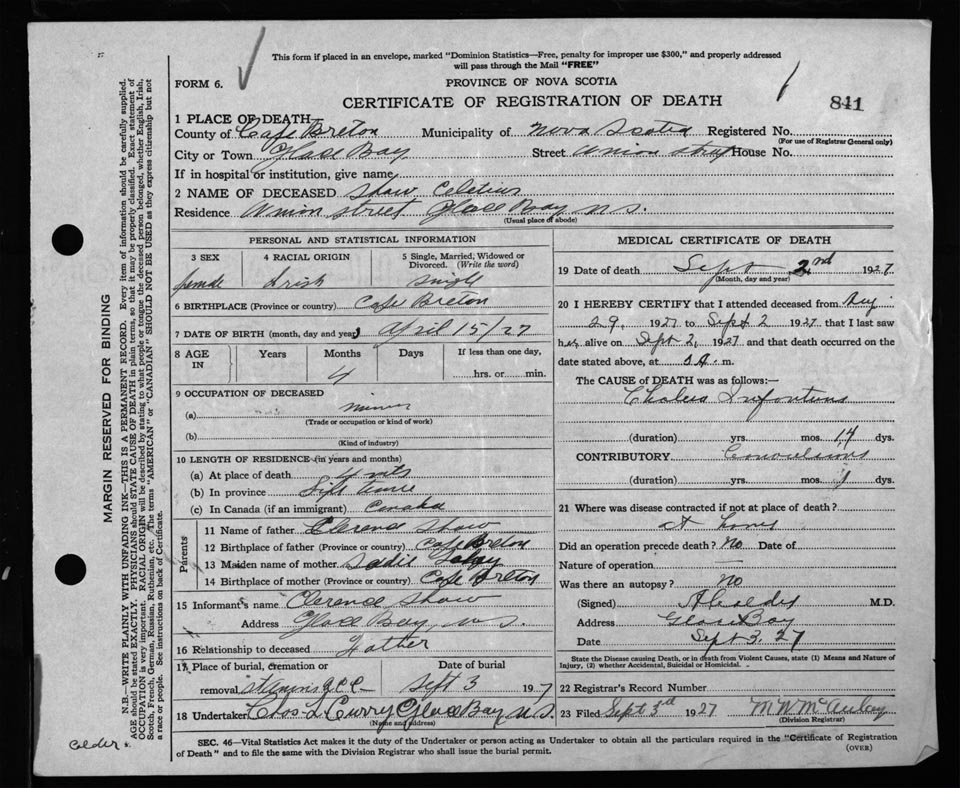 This form if placed in an envelope, marked "Dominion Statistics—Free, penalty for improper use $300," and properly addressed
will pass through the Mail "FREE"
FORM 6.
PROVINCE OF NOVA SCOTIA
CERTIFICATE OF REGISTRATION OF DEATH
841
1 PLACE OF DEATH
County of Cape Breton Municipality of Nova Scotia Registered No.
(For use of Registrar General only)
City or Town Glace Bay Street Union Street House No.
If in hospital or institution, give name
2 NAME OF DECEASED Shaw
Residence Union Street Glace Bay N.S.
(Usual place of abode)
PERSONAL AND STATISTICAL INFORMATION
3 SEX 4 RACIAL ORIGIN 5 Single, Married, Widowed or Divorced. (Write the word)
female Irish Single
6 BIRTHPLACE (Province or country) Cape Breton
7 DATE OF BIRTH (month, day and year) April 15/27
8 AGE IN Years Months Days If less than one day,
4 hrs. or min.
9 OCCUPATION OF DECEASED
(a)
(Trade or occupation or kind of work)
(b)
(Kind of industry)
10 LENGTH OF RESIDENCE (in years and months)
(a) At place of death 4 mts
(b) In province Life time
(c) In Canada (if an immigrant) Canada
Parents
11 Name of father Clerence Shaw
12 Birthplace of father (Province or country) Cape Breton
13 Maiden name of mother
14 Birthplace of mother (Province or country) Cape Breton
15 Informant's name Clerence Shaw
Address Glace Bay, N.S.
16 Relationship to deceased Father
17 Place of burial, cremation or Date of burial
removal Sept 3 1927
18 Undertaker Chas L Curry Glace Bay N.S.
(Name and address)
MEDICAL CERTIFICATE OF DEATH
19 Date of death Sept 2nd 1927
(Month, day and year)
20 I HEREBY CERTIFY that I attended deceased from Aug
29, 1927 to Sept 2 1927 that I last saw
her alive on Sept 2, 1927 and that death occurred on the
date stated above, at m.
The CAUSE of DEATH was as follows:—
Cholera Infantum
(duration) yrs. mos. 14 dys.
CONTRIBUTORY Convulsions
(duration) yrs. mos. 1 dys.
21 Where was disease contracted if not at place of death?
At home
Did an operation precede death? No Date of
Nature of operation —
Was there an autopsy? No
(Signed) M.D.
Address Glace Bay
Date Sept 3. 27
State the Disease causing Death, or in death from Violent Causes, state (1) Means and Nature of
Injury, (2) whether Accidental, Suicidal or Homicidal.
22 Registrar's Record Number
23 Filed Sept 3rd 1927 M W McAulay
(Division Registrar)
SEC. 46—Vital Statistics Act makes it the duty of the Undertaker or person acting as Undertaker to obtain all the particulars required in the "Certificate of Registration
of Death" and to file the same with the Division Registrar who shall issue the burial permit.
(OVER)
MARGIN RESERVED FOR BINDING
N.B.—WRITE PLAINLY WITH UNFADING INK—THIS IS A PERMANENT RECORD. Every item of information should be carefully supplied.
AGE should be stated EXACTLY. PHYSICIANS should STATE CAUSE OF DEATH in plain terms, so that it may be properly classified. Exact statement of
OCCUPATION is very important. RACIAL ORIGIN will be described by stating to what people or tongue the deceased person belonged, whether English, Irish,
Scotch, French, German, Russian, Ruthenian, etc. The terms "AMERICAN" or "CANADIAN" SHOULD NOT BE USED as they express citizenship but not
a race or people. See instructions on back of Certificate.
Calder